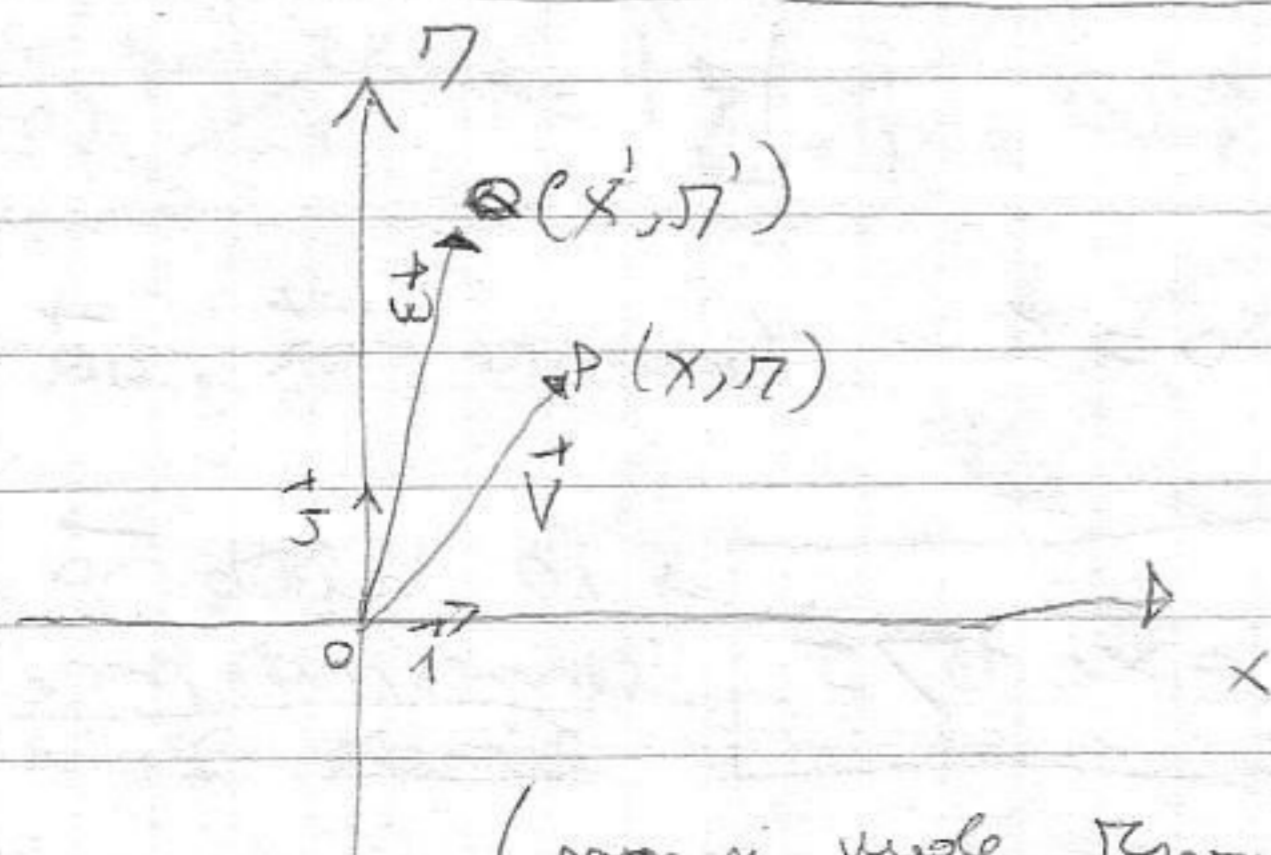 y
Q(x',y')
w
P(x,y)
v
j
0 i
x
vuole